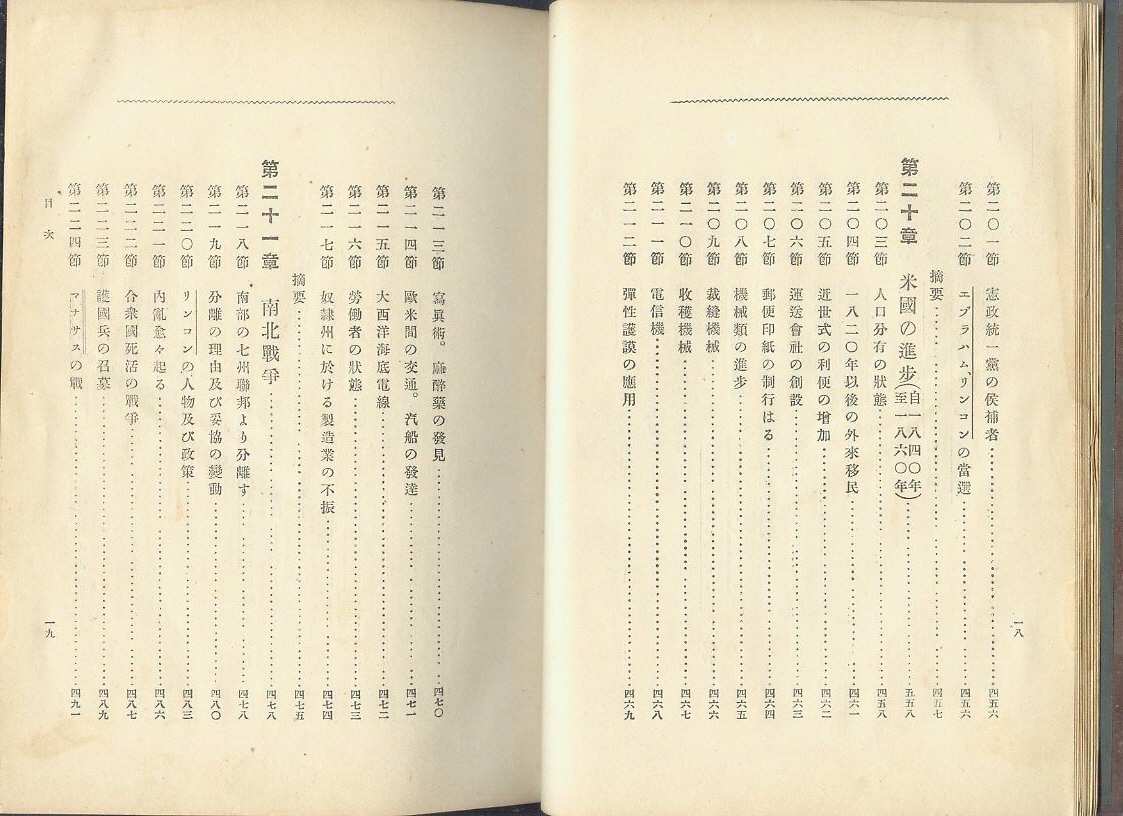 一八
第二〇一節 憲政統一黨の侯補者 四五六
第二〇二節 エブラハム、リンコンの當選 四五六
摘要 四五七
第二十章 米國の進步(自一八四〇年至一八六〇年) 五五八
第二〇三節 人口分有の狀態 四五八
第二〇四節 一八二〇年以後の外來移民 四六一
第二〇五節 近世式の利便の增加 四六二
第二〇六節 運送會社の創設 四六三
第二〇七節 郵便印紙の制行はる 四六四
第二〇八節 機械類の進步 四六五
第二〇九節 裁縫機械 四六六
第二一〇節 收穫機械 四六七
第二一一節 電信機 四六八
第二一二節 彈性護謨の應用 四六九
第二一三節 寫眞術。麻醉藥の發見 四七〇
第二一四節 歐米間の交通。汽船の發達 四七一
第二一五節 大西洋海底電線 四七二
第二一六節 勞働者の狀態 四七三
第二一七節 奴隷州に於ける製造業の不振 四七四
摘要 四七五
第二十一章 南北戰爭 四七八
第二一八節 南部の七州聯邦より分離す 四七八
第二一九節 分離の理由及び妥協の變動 四八〇
第二二〇節 リンコンの人物及び政策 四八三
第二二一節 內亂愈々起る 四八六
第二二二節 合衆國死活の戰爭 四八七
第二二三節 護國兵の召募 四八九
第二二四節 マナサスの戰 四九一
目次
一九